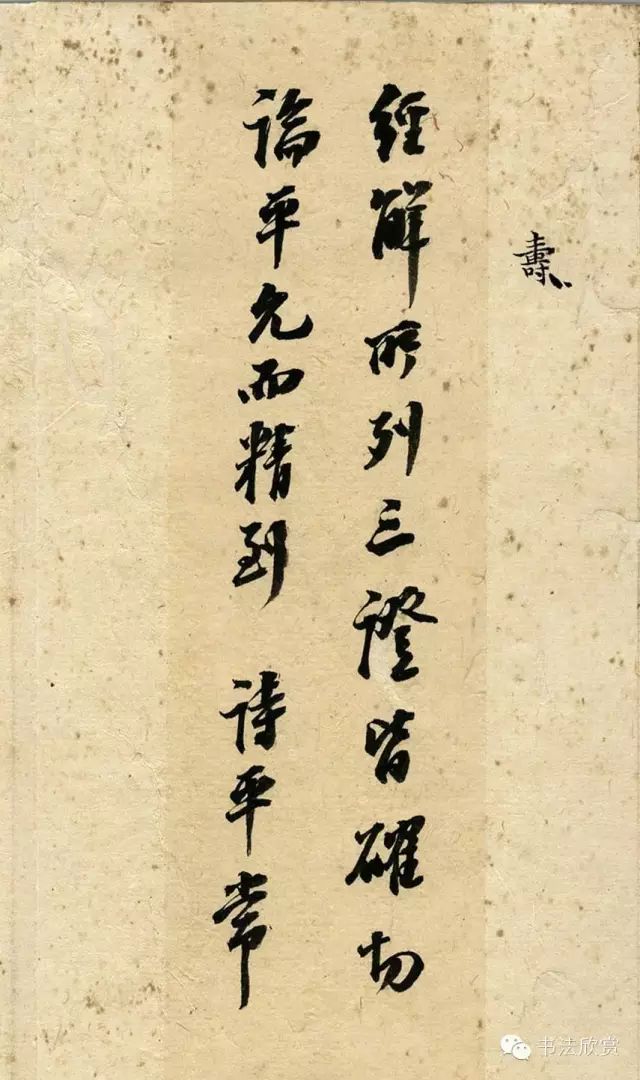 壽
經解所列三證皆確切
論平允而精到 詩平常
书法欣赏